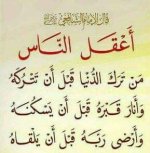 قال الإمام الشافعي
أَعْقَلُ النَّاسِ
مَن تَرَكَ الدُّنْيَا قَبْلَ أَن تَتْرُكَهُ
وَأَنَارَ قَبْرَهُ قَبْلَ أَنْ يَسْكُنَهُ
وَأَرْضَى رَبَّهُ قَبْلَ أَن يَلْقَاهُ